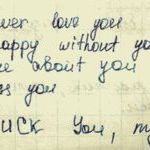 ver love you
appy without yo
e about you
ss you
UCK You, my